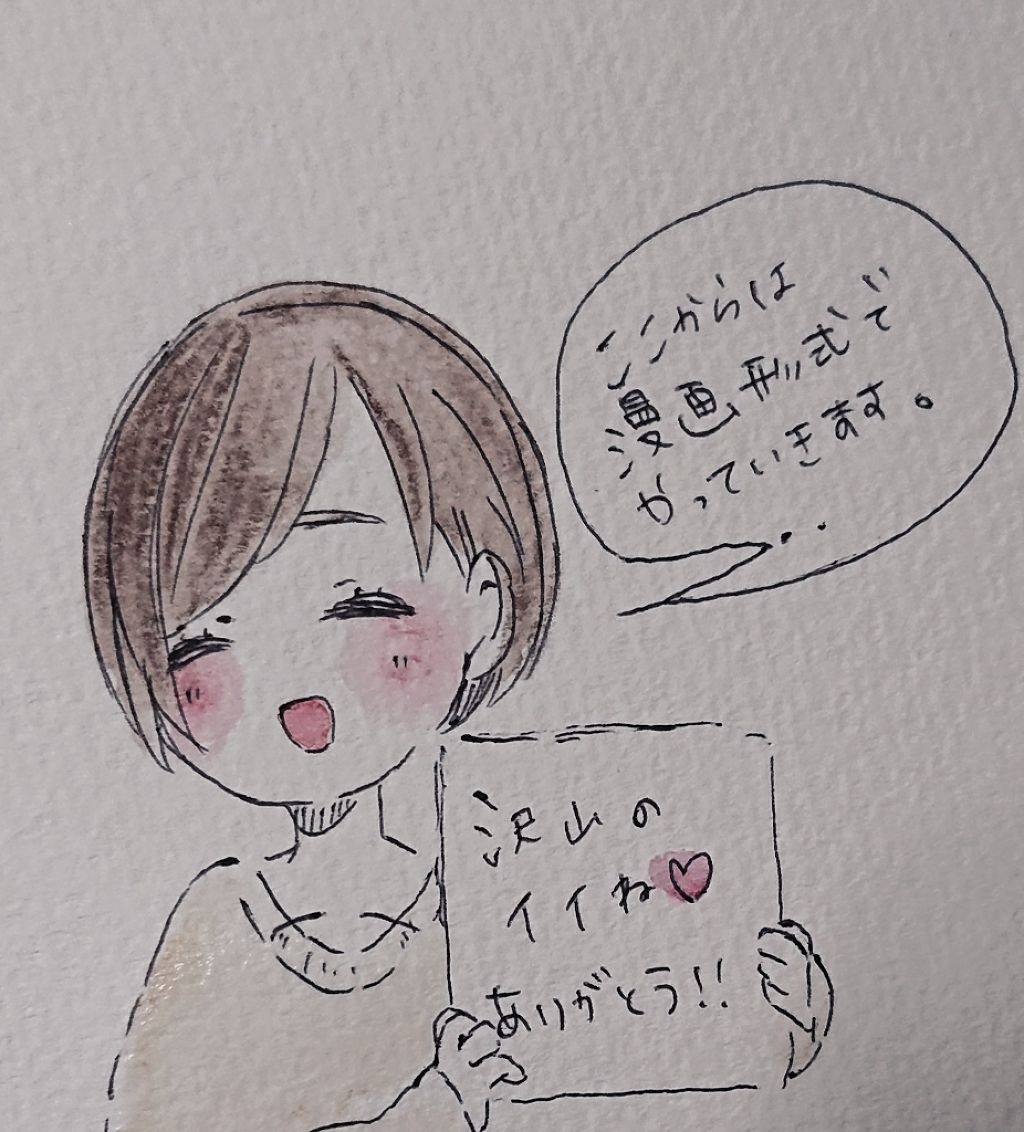 ここからは
漫画形式で
やっていきます。
沢山の
イイね♡
ありがとう!!